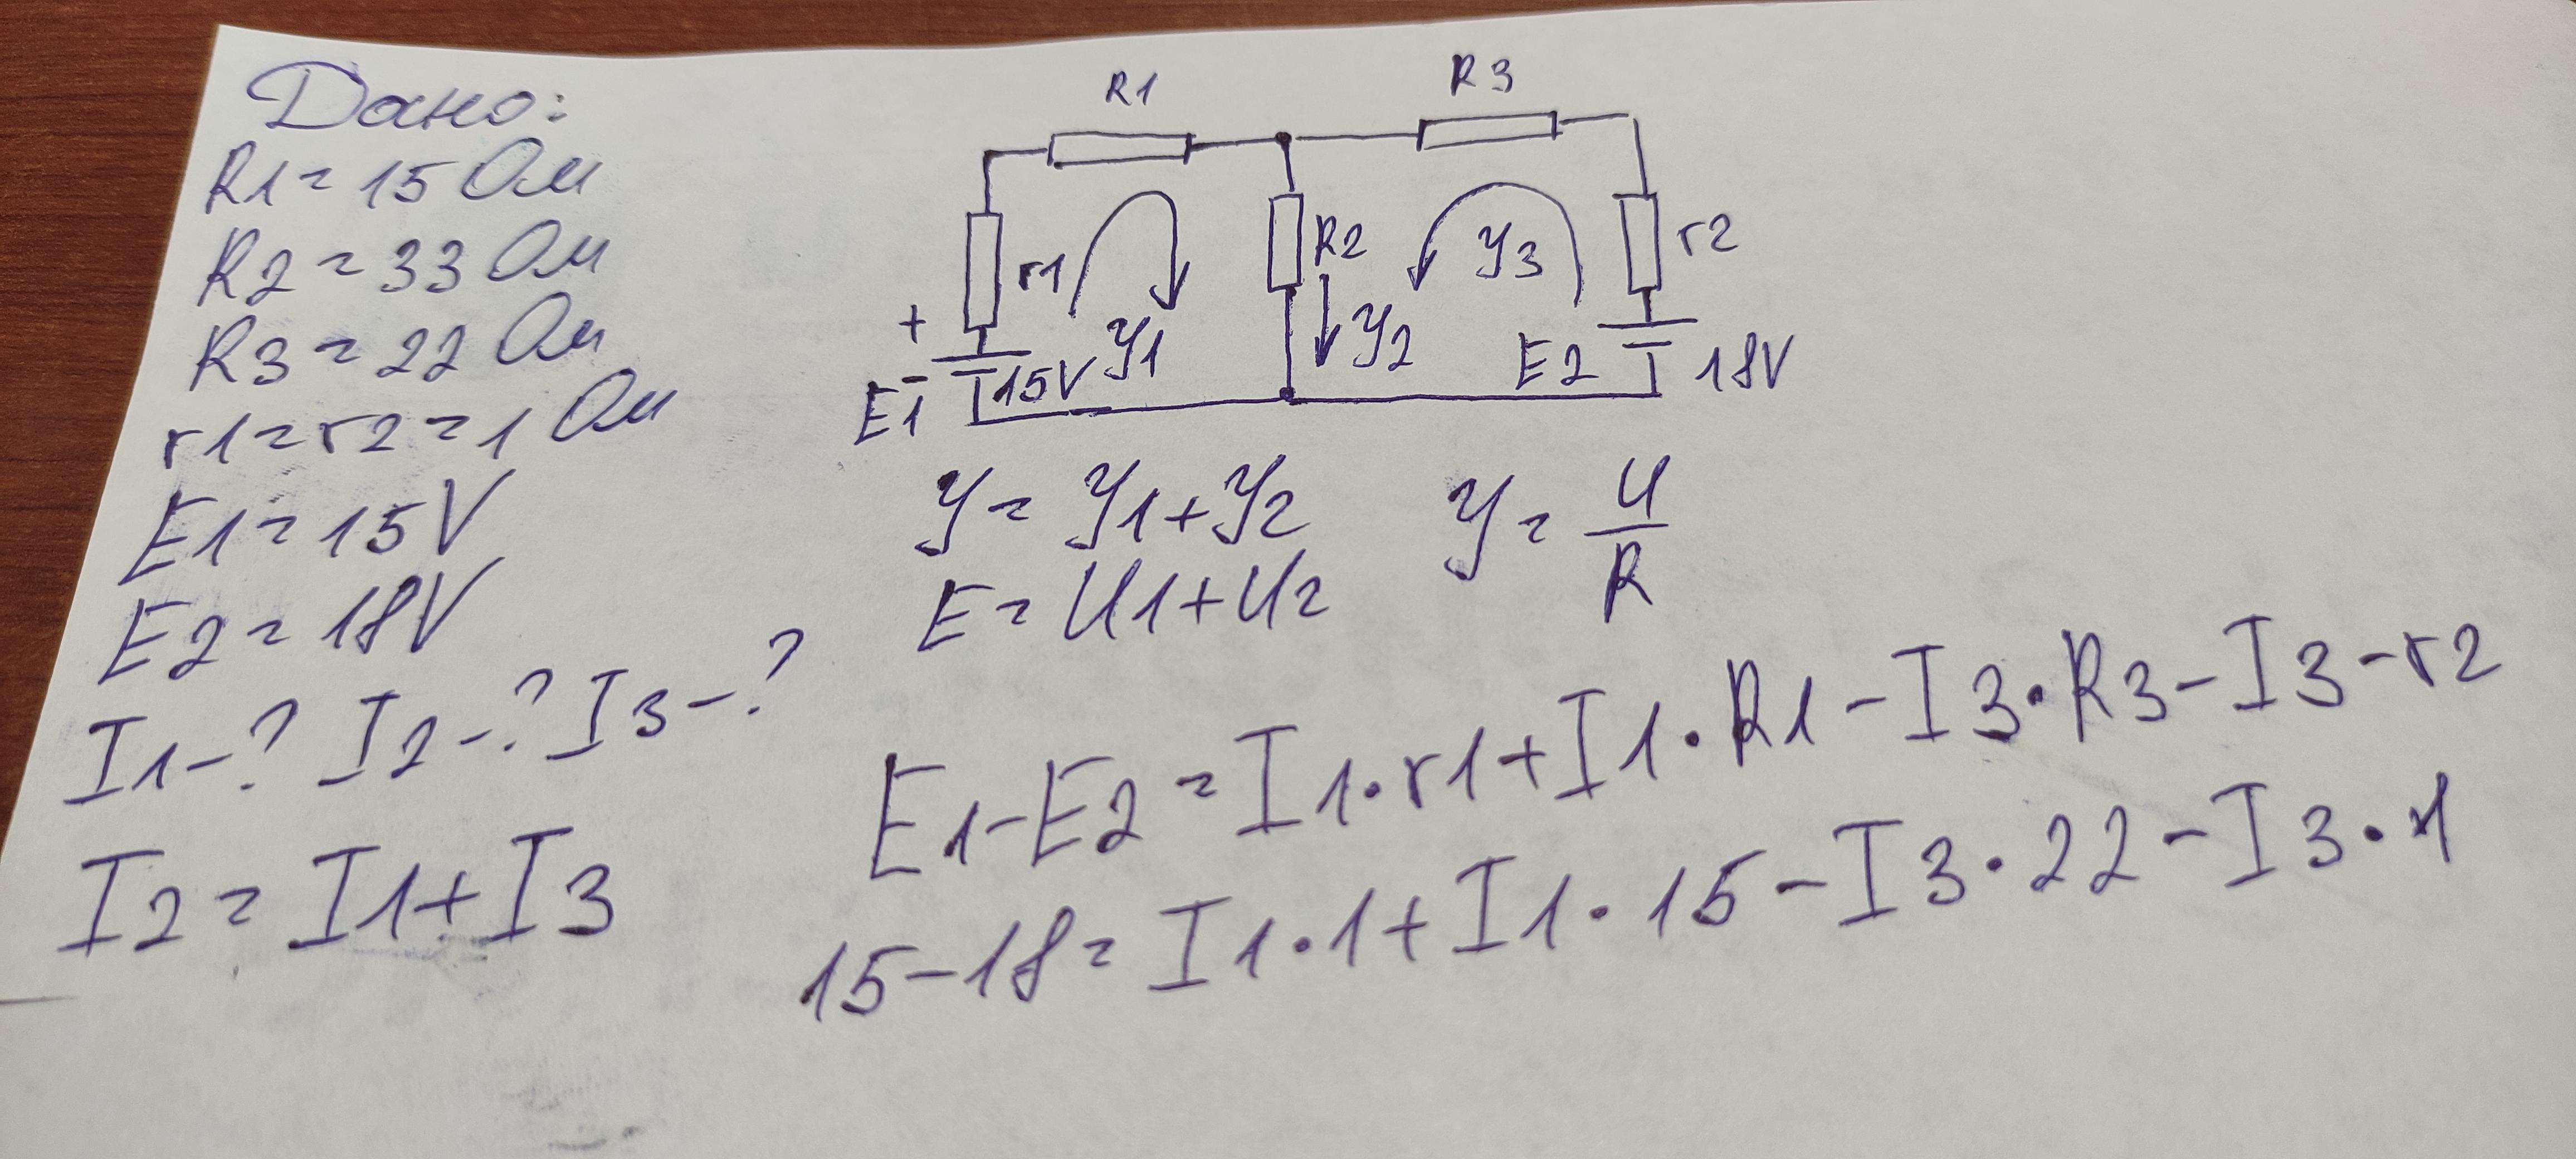 Дано:
R1=15 Ом
R2=33 Ом
R3=22 Ом
r1=r2=1 Ом
E1=15V
E2=18V
I1-? I2-? I3-?
I2=I1+I3
R1
R3
r1
R2
У3
r2
+
У1
У2
-
15V
E1
E2
18V
У=У1+У2
У=U/R
E=U1+U2
E1-E2=I1·r1+I1·R1-I3·R3-I3-r2
15-18=I1·1+I1·15-I3·22-I3·1